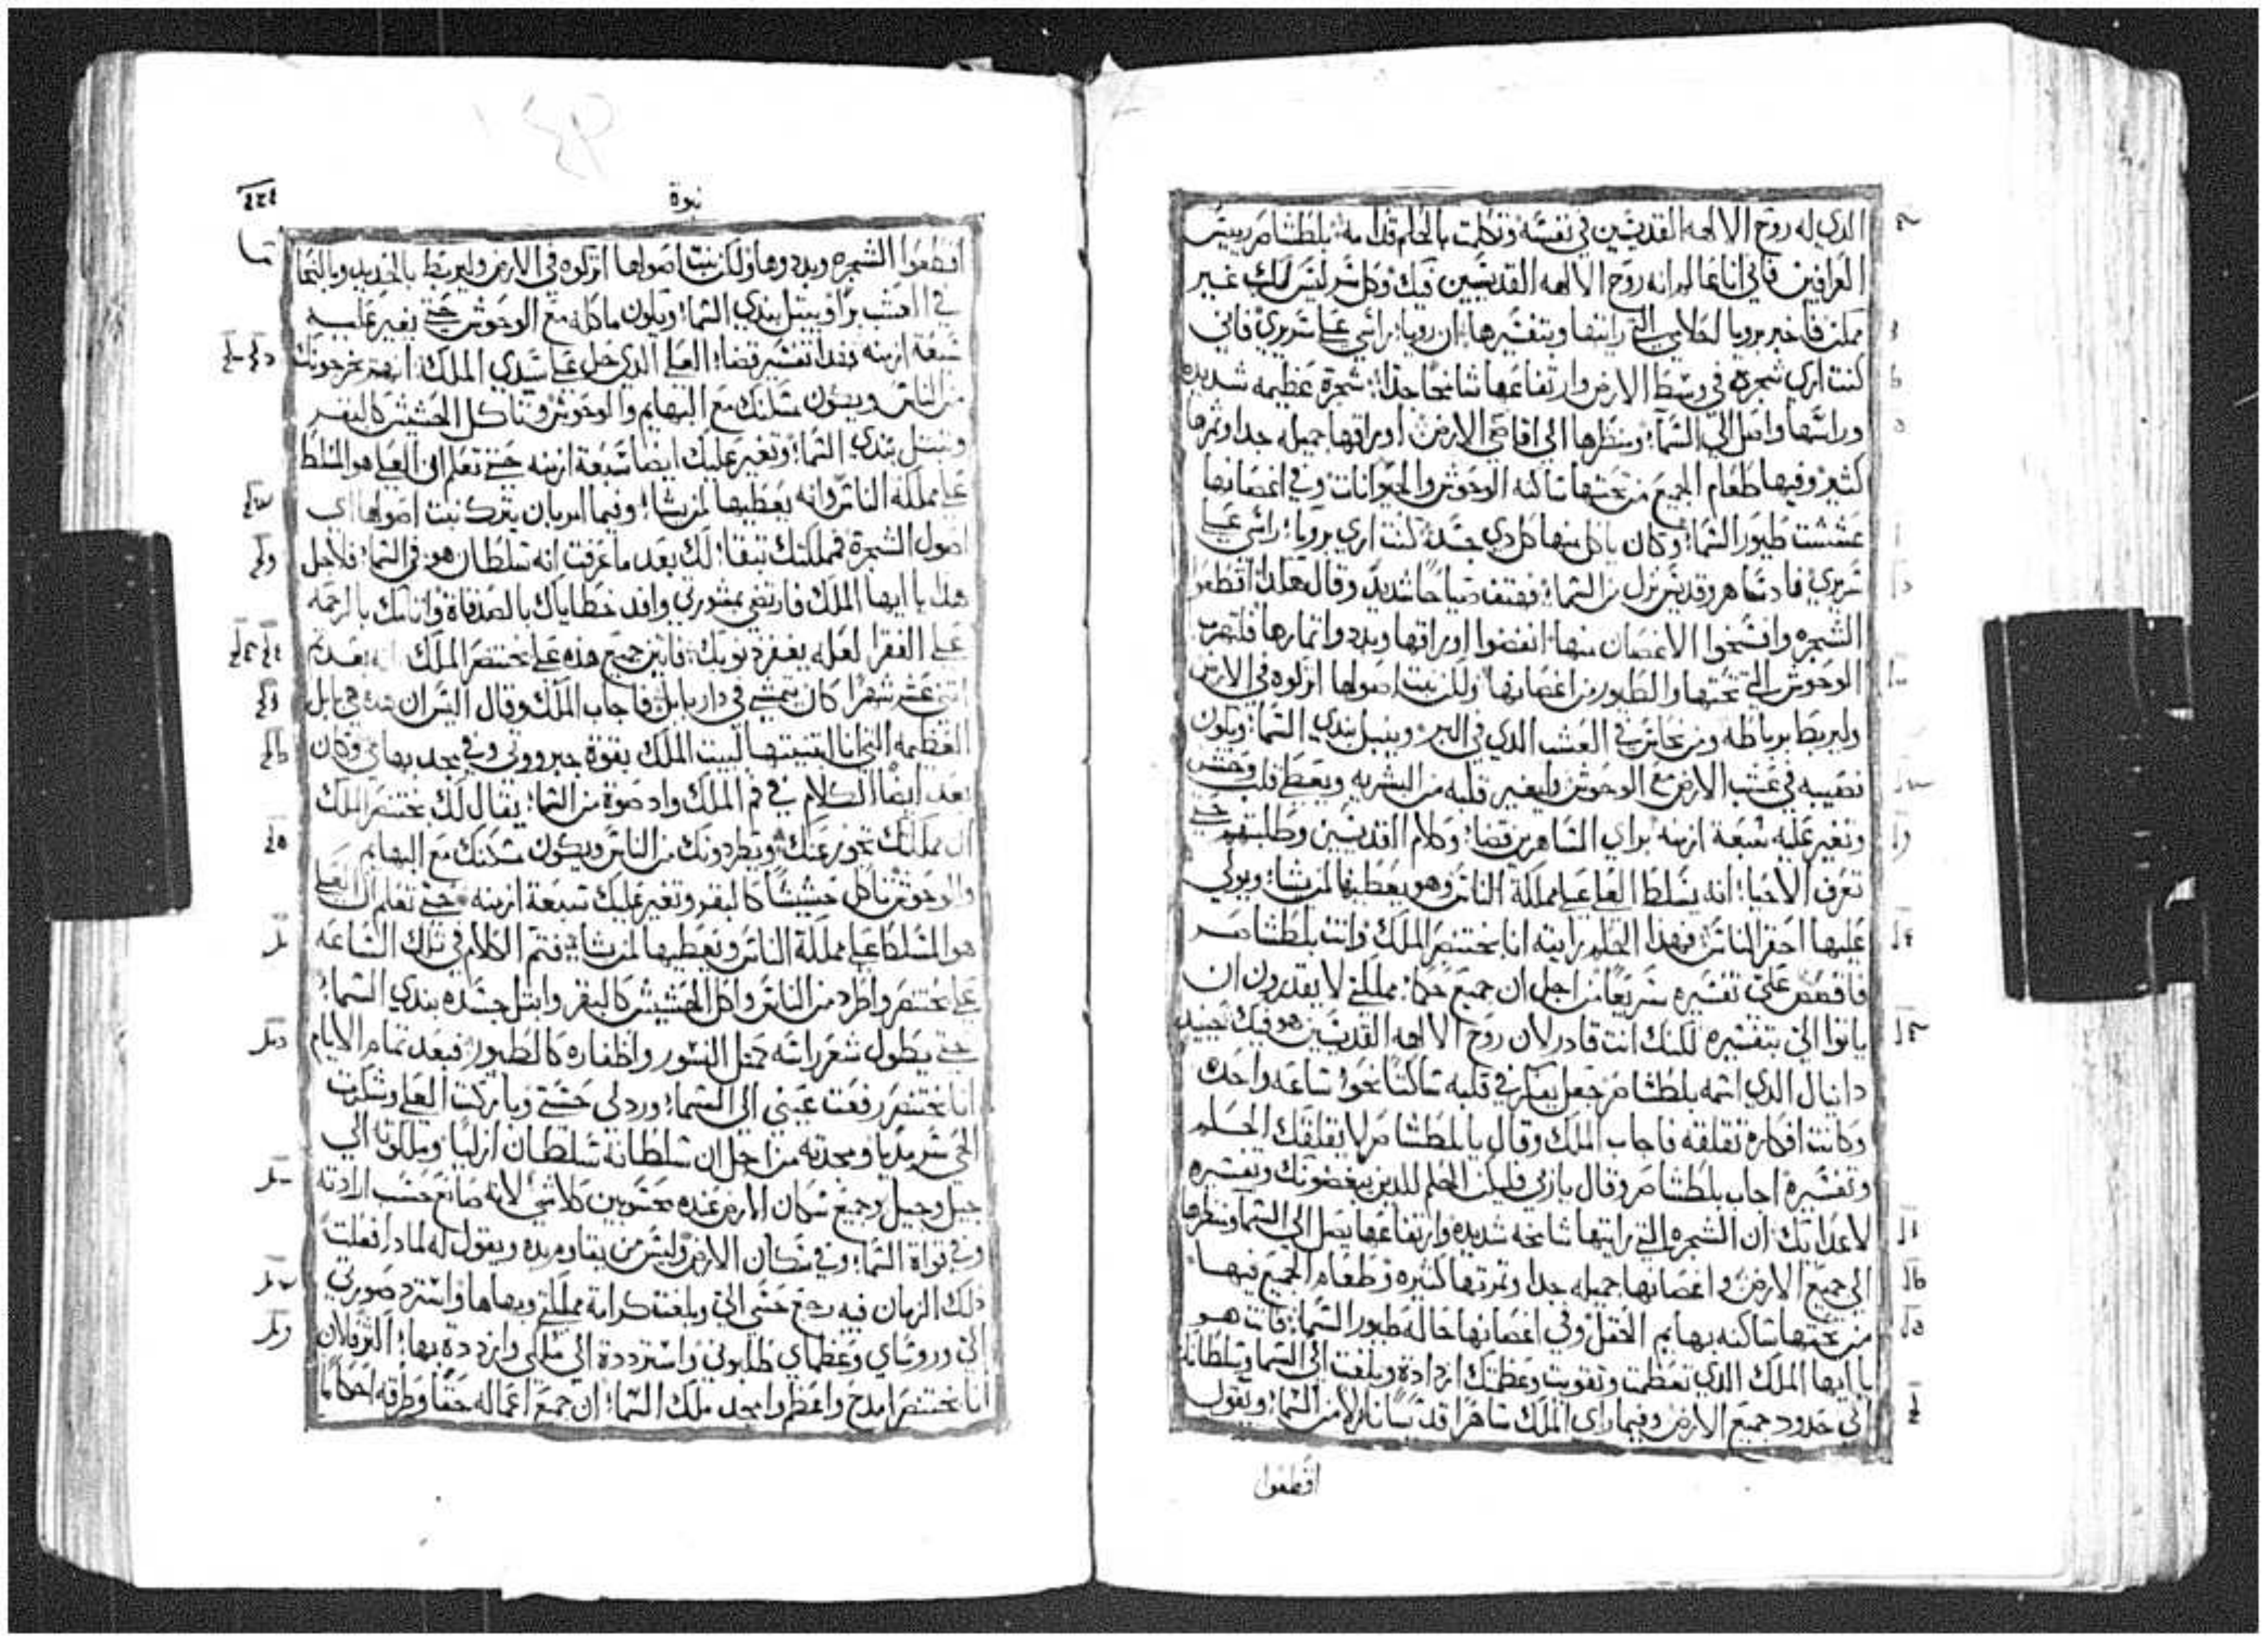 الذي له روح الالهه القديسين في نفسه وتكلمت بالحلم قدامه بلطشاصر رييس
العرافين فاني انا عالم انه روح الالهه القديسين فيك وكل سر ليس لك غير
ممكن فاخبر برويا احلامي التي رايتها وبتفسيرها ان رويا راسي علي سريري فاني
كنت اري شجره في وسط الارض وارتفاعها شامخا جدا شجرة عظيمه شديده
وراسها واصل الي السما ومنظرها الي اقاصي الارض اوراقها جميله جدا وثمرها
كثير وفيها طعام الجميع من تحتها ساكنه الوحوش والحيوانات وفي اغصانها
عششت طيور السما وكان ياكل منها كل دي جسد كنت اري برويا راسي علي
سريري فادا ساهر وقديس نزل من السما فهتف صياحا شديد وقال هكدا اقطعوا
الشجره وافسخوا الاغصان منها انفضوا اوراقها وبددوا اتمارها فلتهرب
الوحوش التي تحتها والطيور من اغصانها ولكن نبت اصولها اتركوه في الارض
وليربط برباطه ومن نحاس في العشب الدي في البر ويبتل بندي السما ويكون
نصيبه في عشب الارض مع الوحوش وليغير قلبه من البشريه ويعطا قلب وحش
وتغير عليه سبعة ازمنه براي الساهرين قضا وكلام القديسين وطلبتهم حتي
تعرف الاحيا انه يسلط العلي علي مملكة الناس وهو يعطيها لمن يشا ويولي
عليها احقر الناس فهدا الحلم رايته انا بختنصر الملك وانت بلطشاصر
فاقصص علي تفسيره سريعا من اجل ان جميع حكما مملكتي لا يقدرون ان
ياتوا الي بتفسيره لكنك انت قادر لان روح الالهه القديسين هو فيك حينيد
دانيال الدي اسمه بلطشاصر جعل يفكر في قلبه ساكتا نحو ساعه واحده
وكانت افكاره تقلقه فاجاب الملك وقال يا بلطشاصر لا يقلقك الحلم
وتفسيره اجاب بلطشاصر وقال يا ربي فليكن الحلم للدين يبغضونك وتفسيره
لاعدايك ان الشجره التي رايتها شامخه شديده وارتفاعها يصل الي السما ومنظرها
الي جميع الارض واغصانها جميله جدا وثمرتها كثيره وطعام الجميع فيها
من تحتها ساكنه بهايم الحقل وفي اغصانها حاله طيور السما فانت هو
يا ايها الملك الدي تعظمت وتقويت وعظمتك ازدادة وبلغت الي السما وسلطانك
الي حدود جميع الارض وفيما راي الملك ساهرا قديسا نازلا من السما ويقول
اقطعوا
نبوة
اقطعوا الشجره وبددوها ولكن نبت اصولها اتركوه في الارض وليربط بالحديد وبالنحاس
في العشب برا ويبتل بندي السما ويكون ماكله مع الوحوش حتي يغير عليه
سبعة ازمنه فهدا تفسير قضا العلي الدي حل علي سيدي الملك انهم يخرجونك
من الناس ويكون مسكنك مع البهايم والوحوش وتاكل الحشيش كالبقر
وتبتل بندي السما وتغير عليك ايضا سبعة ازمنه حتي تعلم ان العلي هو المسلط
علي مملكة الناس وانه يعطيها لمن يشا وفيما امر بان يترك نبت اصولها اي
اصول الشجرة فمملكتك تبقا لك بعد ما عرفت انه سلطان هو في السما فلاجل
هدا يا ايها الملك فارتضي بمشورتي وافد خطاياك بالصدقاة واتامك بالرحمه
علي الفقرا لعله يغفر دنوبك فاتين جميع هذه علي بختنصر الملك بعد
اتني عشر شهرا كان يتمشي في دار بابل فاجاب الملك وقال اليس ان هده هي بابل
العظيمه التي انا ابتنيتها لبيت الملك بقوة جبروتي وفي مجد بهاي وكان
بعد ايضا الكلام في فم الملك واد صوة من السما يقال لك بختنصر الملك
ان مملكتك تجوز عنك ويطردونك من الناس ويكون مسكنك مع البهايم
والوحوش تاكل حشيشا كالبقر وتغير عليك سبعة ازمنه حتي تعلم ان العلي
هو المسلط علي مملكة الناس ويعطيها لمن يشا فتم الكلام في تلك الساعه
علي بختنصر واطرد من الناس واكل الحشيش كالبقر وابتل جسده بندي السما
حتي يطول شعر راسه كمتل النسور واظفاره كالطيور فبعد تمام الايام
انا بختنصر رفعت عيني الي السما ورد لي حسي وباركت العلي وشكرت
الحي سرمديا ومجدته من اجل ان سلطانه سلطان ازليا وملكوته الي
جيل وجيل وجميع سكان الارض عنده محسوبين كلاشي لانه صانع حسب ارادته
وفي قواة السما وفي سكان الارض وليس من يقاوم يده ويقول له لمادا فعلت
دلك الزمان فيه رجع حسي الي وبلغت كرامة مملكتي وبهاها واسترد صورتي
الي وروساي وعظماي طلبوني واسترددة الي ملكي وازددة بها اكثر فالان
انا بختنصر امدح واعظم وامجد ملك السما ان جميع اعماله حقا وطرقه احكاما